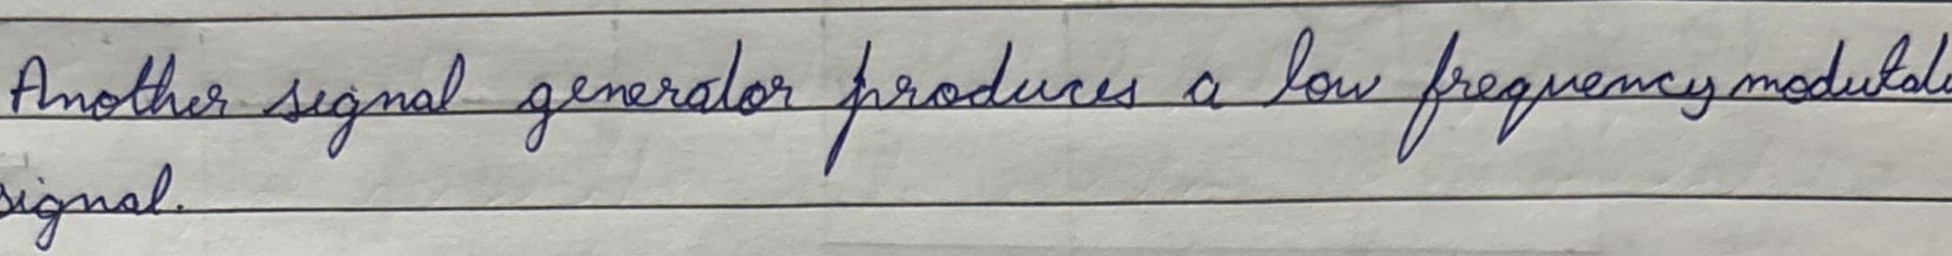 Another signal generator produces a low frequency
signal.